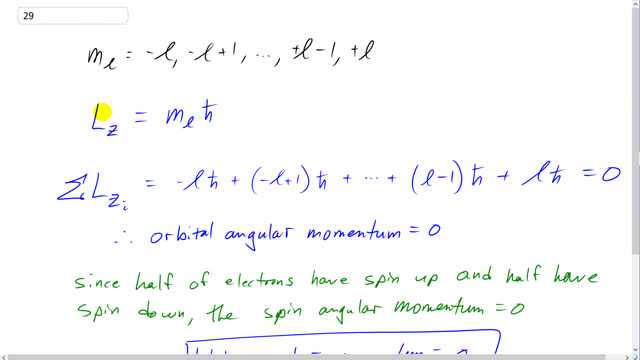 29
mℓ = -ℓ, -ℓ+1, ..., +ℓ-1, +ℓ
L_z = mℓ ħ
Σ L_zᵢ = -ℓħ + (-ℓ+1)ħ + ... + (ℓ-1)ħ + ℓħ = 0
∴ orbital angular momentum = 0
since half of electrons have spin up and half have
spin down, the spin angular momentum = 0